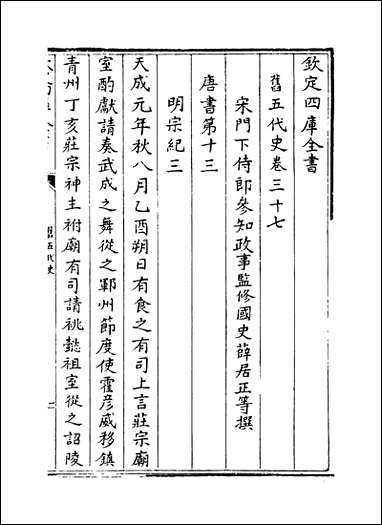 欽定四庫全書
舊五代史卷三十七
宋門下侍郎參知政事監修國史薛居正等撰
唐書第十三
明宗紀三
天成元年秋八月乙酉朔日有食之有司上言莊宗廟
室酌獻請奏武成之舞從之鄆州節度使霍彥威移鎮
青州丁亥莊宗神主祔廟有司請祧懿祖室從之詔陵
舊五代史